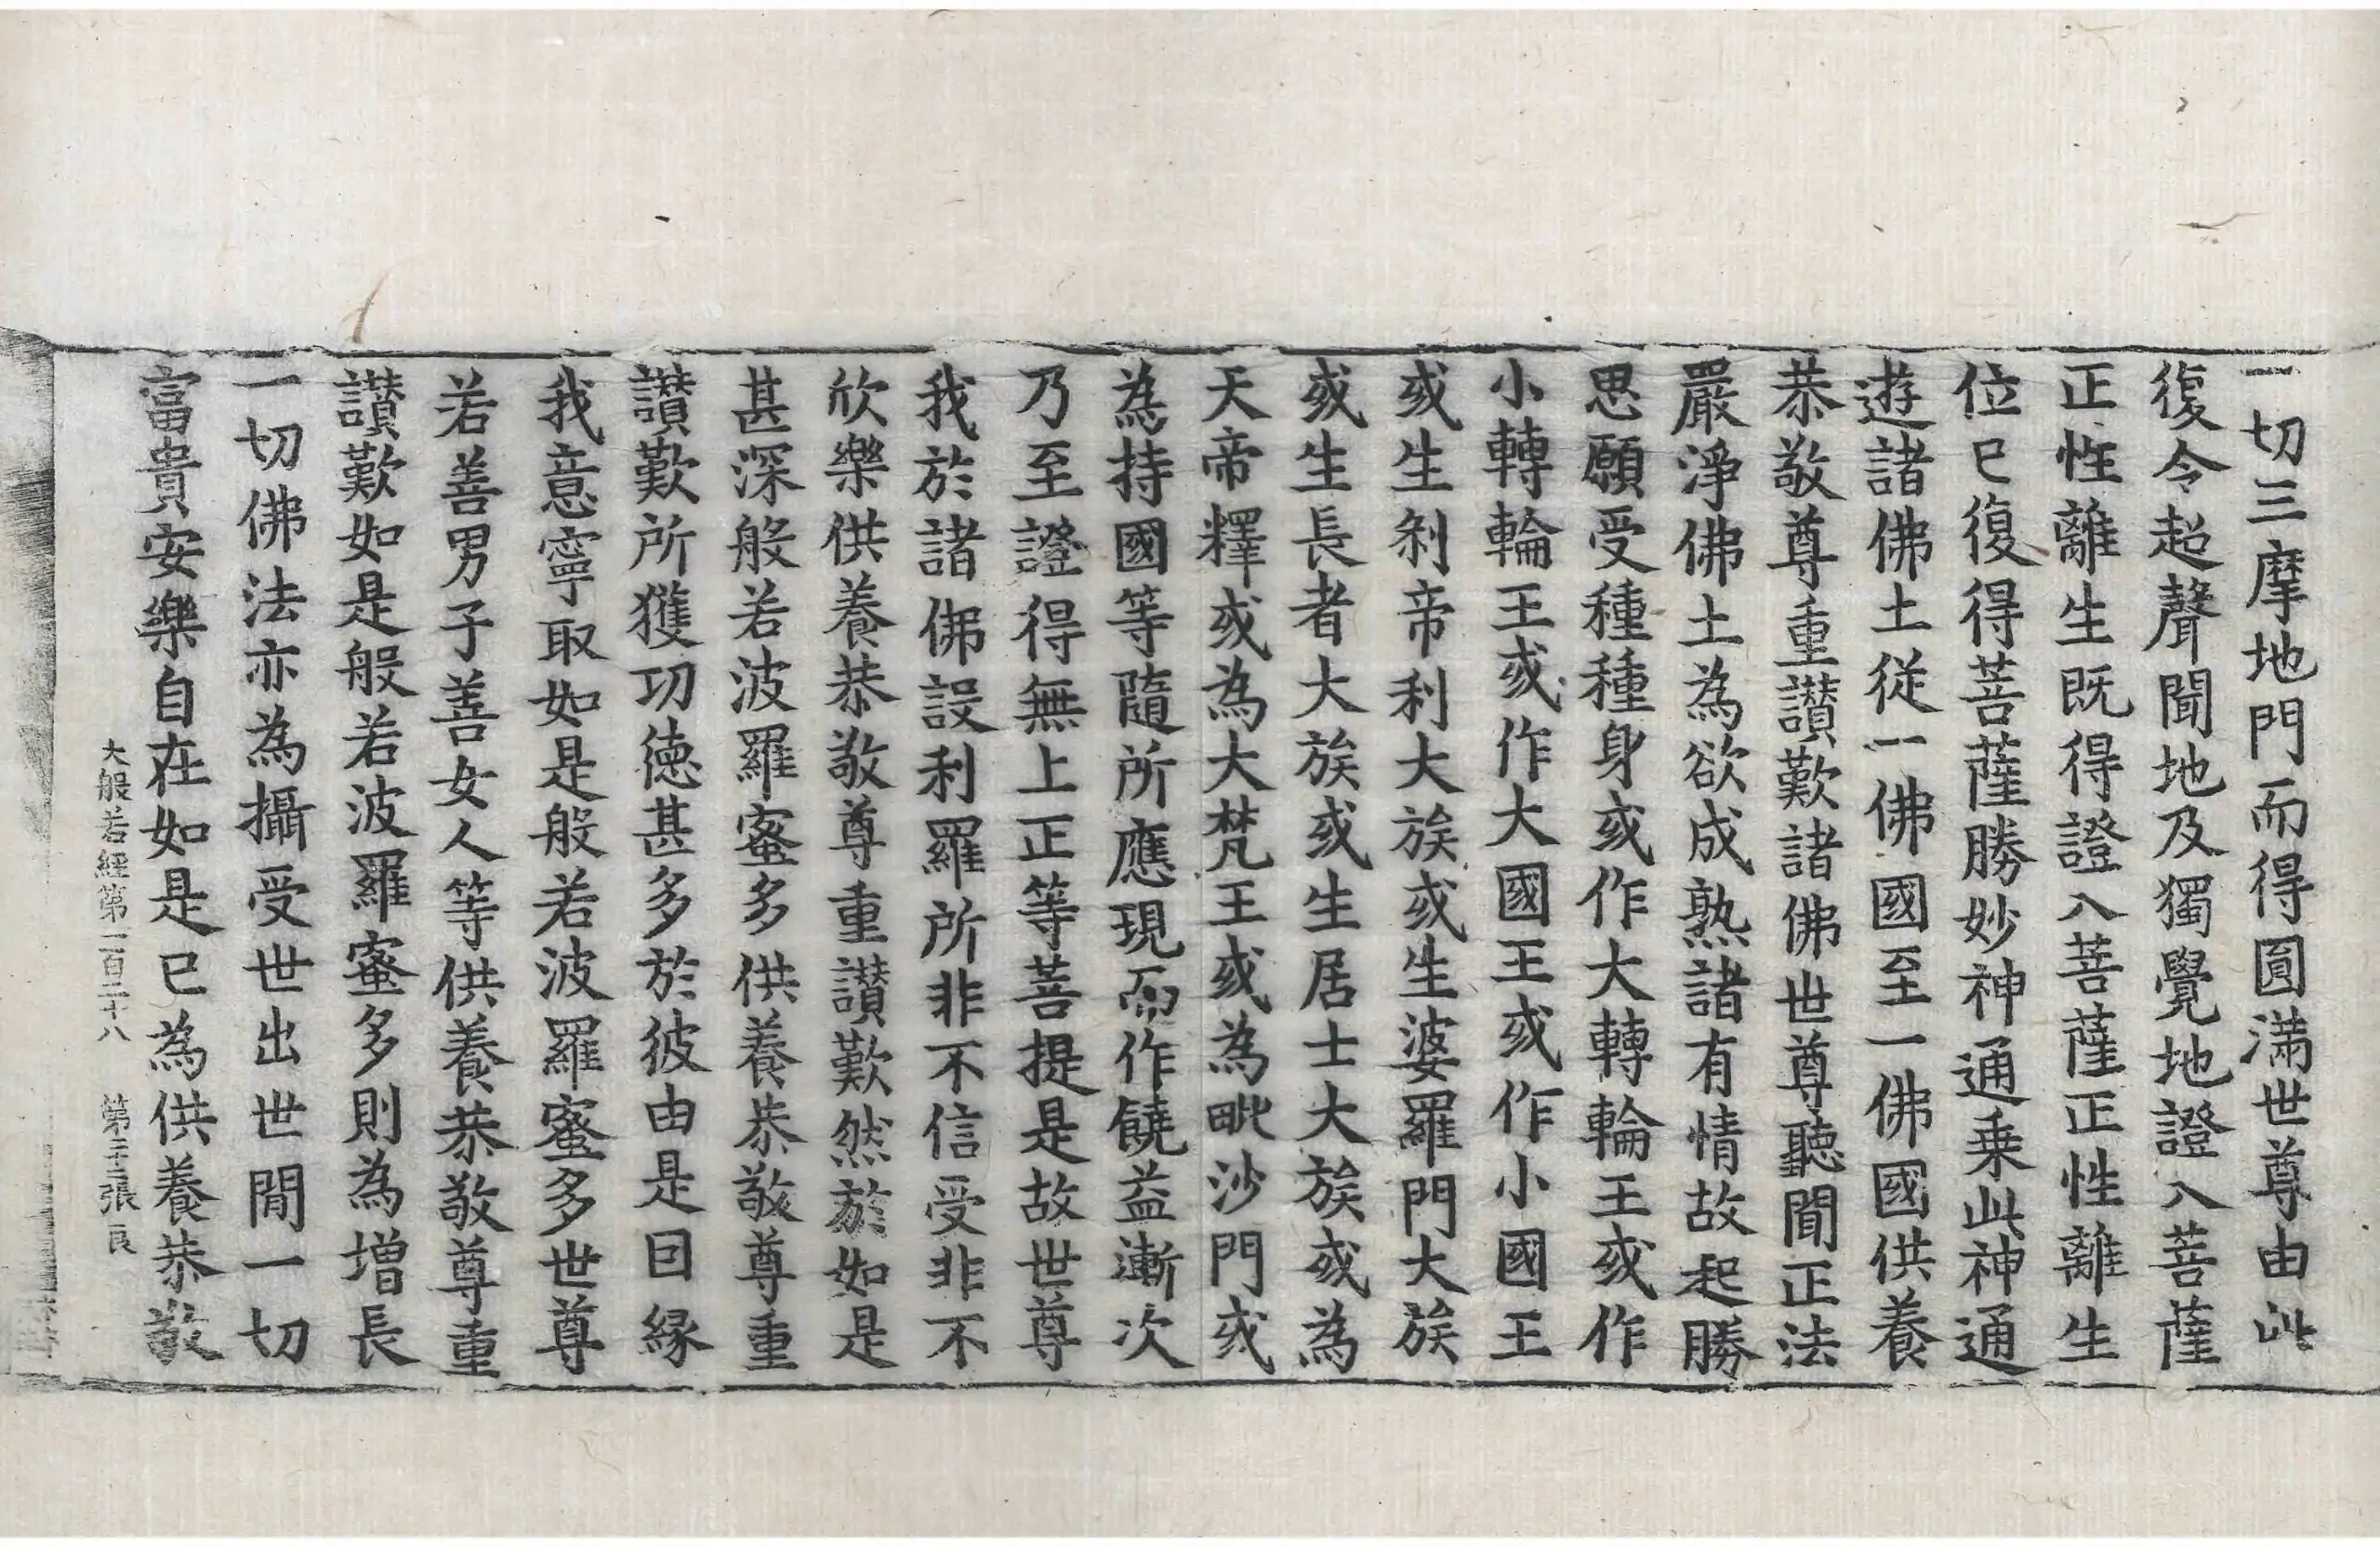 一切三摩地門而得圓滿世尊由此
復令超聲聞地及獨覺地證入菩薩
正性離生既得證入菩薩正性離生
位已復得菩薩勝妙神通乗此神通
遊諸佛土從一佛國至一佛國供養
恭敬尊重讃歎諸佛世尊聽聞正法
嚴淨佛土為欲成熟諸有情故起勝
思願受種種身或作大轉輪王或作
小轉輪王或作大國王或作小國王
或生刹帝利大族或生婆羅門大族
或生長者大族或生居士大族或為
天帝釋或為大梵王或為毗沙門或
為持國等隨所應現而作饒益漸次
乃至證得無上正等菩提是故世尊
我於諸佛設利羅所非不信受非不
欣樂供養恭敬尊重讃歎然於如是
甚深般若波羅蜜多供養恭敬尊重
讃歎所獲功徳甚多於彼由是因縁
我意寧取如是般若波羅蜜多世尊
若善男子善女人等供養恭敬尊重
讃歎如是般若波羅蜜多則為增長
一切佛法亦為攝受世出世間一切
富貴安樂自在如是已為供養恭敬
大般若經第一百二十八 第十二張 良